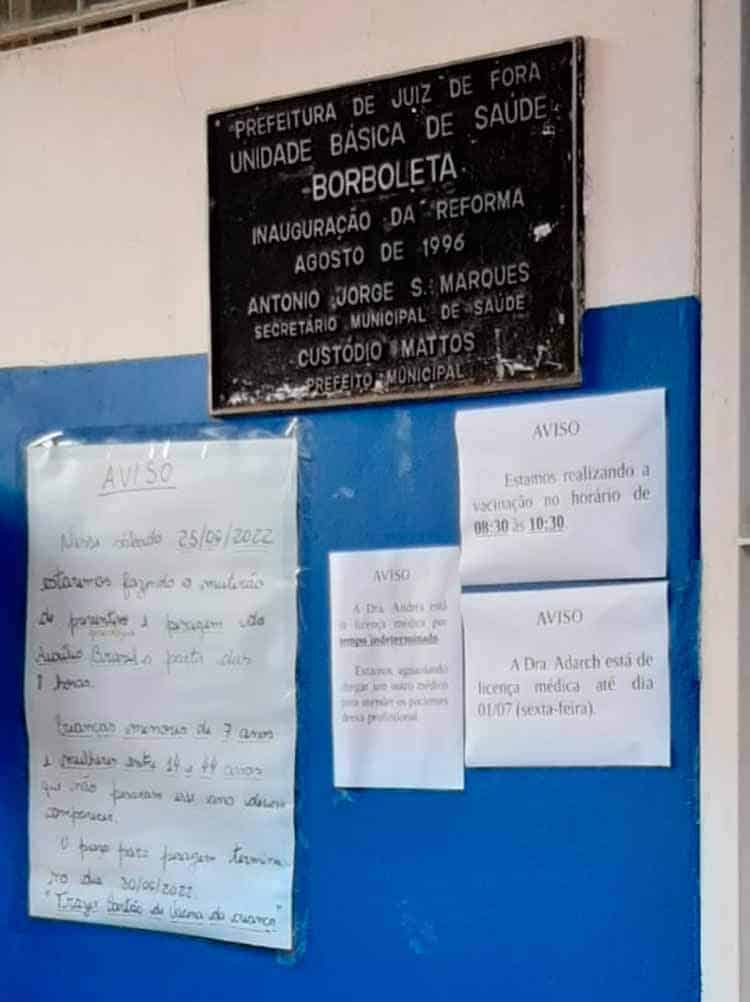 PREFEITURA DE JUIZ DE FORA
UNIDADE BÁSICA DE SAÚDE
BORBOLETA
INAUGURAÇÃO DA REFORMA
AGOSTO DE 1996
ANTONIO JORGE S. MARQUES
SECRETÁRIO MUNICIPAL DE SAÚDE
CUSTÓDIO MATTOS
PREFEITO MUNICIPAL
AVISO
Nesse sábado 25/06/2022
estaremos fazendo o mutirão
de preventivo e pesagem do
Auxílio Brasil a partir das
8 horas.
Crianças menores de 7 anos
e mulheres entre 14 e 44 anos
que não pesaram esse ano devem
comparecer.
O prazo para pesagem termina
no dia 30/06/2022.
"Trazer Cartão de Vacina da criança"
AVISO
A Dra. Andréa está
de licença médica por
tempo indeterminado.
Estamos aguardando
chegar um outro médico
para atender os pacientes
dessa profissional.
AVISO
Estamos realizando a
vacinação no horário de
08:30 às 10:30.
AVISO
A Dra. Adarch está de
licença médica até dia
01/07 (sexta-feira).